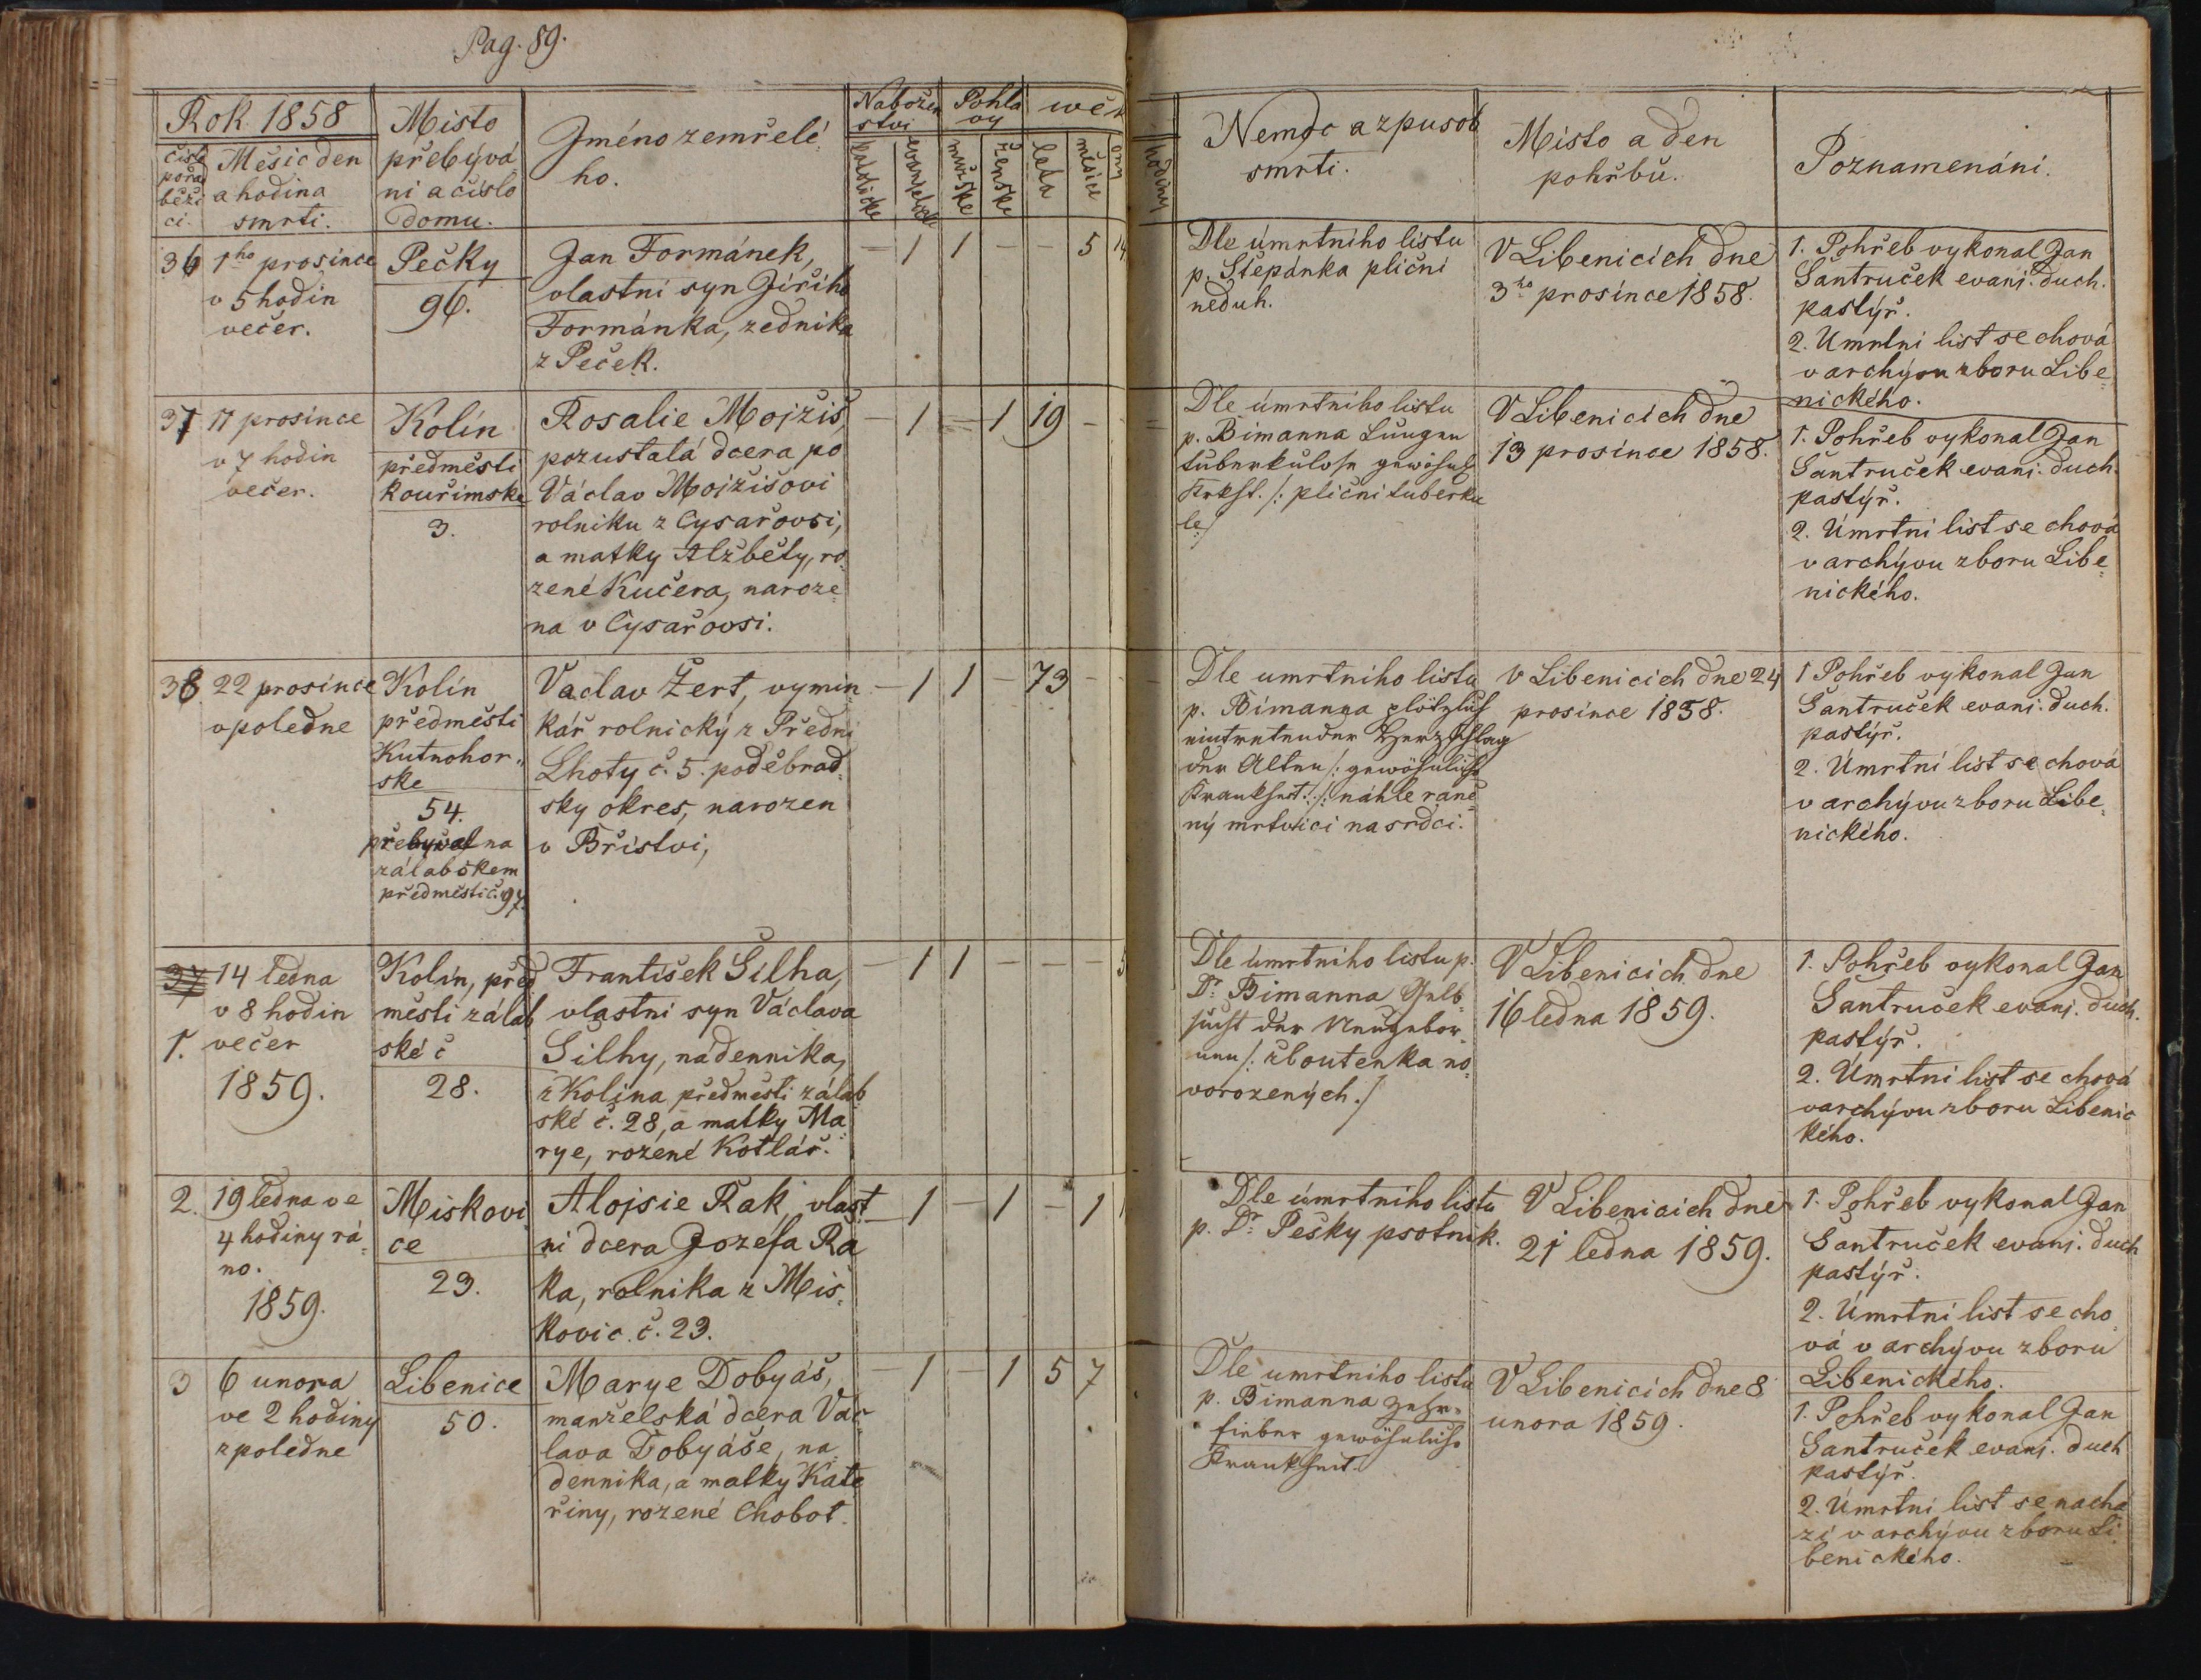 Pag. 89.
Rok 1858
čislo
pořad
běži
ci.
Měsic den
a hodina
smrti.
Misto
přebývá
ni a čislo
domu.
Jméno zemřelé
ho.
Nabožen
stvi
katolické
evanjelické
Pohla
vy
mužské
ženské
wěk
leta
měsice
dny
hodiny
Nemoc a zpusob
smrti.
Misto a den
pohřbu.
Poznamenáni.
36
1ho prosince
v 5 hodin
večer.
Pečky
96.
Jan Formánek,
vlastni syn Jiřiho
Formánka, zednika
z Peček.
— 1 1 — — 5 14
Dle úmrtniho listu
p. Štěpánka plični
neduh.
V Libenicich dne
3ho prosince 1858.
1. Pohřeb vykonal Jan
Šantruček evanj. duch.
pastýř.
2. Umrtni list se chová
v archývu zboru Libe
nického.
37
11 prosince
v 7 hodin
večer.
Kolín
předměsti
kouřimske
3.
Rosalie Mojžiš,
pozustalá dcera po
Václavo Mojžišovi
rolniku z Cysařovsi,
a matky Alžběty, ro
zené Kučera, naroze
na v Cysařovsi.
— 1 — 1 19 —
Dle úmrtniho listu
p. Bimanna Lungen
tuberkulose gewöhnl
Krkht. /: plični tuberku
le:/
V Libenicich dne
13 prosince 1858.
1. Pohřeb vykonal Jan
Šantruček evanj. duch.
pastýř.
2. Úmrtni list se chová
v archývu zboru Libe
nického.
38
22 prosince
v poledne
Kolín
předměsti
Kutnohor
ske
54.
přebyval na
zálabskem
předměsti č. 97.
Vaclav Žert, vymin
kář rolnický z Předni
Lhoty č. 5. poděbrad
sky okres, narozen
v Břistvi,
— 1 1 — 73 —
Dle umrtniho listu
p. Bimanna plötzlich
eintretender Herzschlag
der Alten /: gewöhnliche
Krankheit. /: náhle raně
ný mrtvici na srdci.
v Libenicich dne 24
prosince 1858.
1 Pohřeb vykonal Jan
Šantruček evanj. duch.
pastýř.
2. Úmrtní list se chová
v archývu zboru Libe
nického.
37
1.
14 ledna
v 8 hodin
večer
1859.
Kolín, před
městi zálab
ské č
28.
František Šilha,
vlastni syn Václava
Šilhy, nádennika,
z Kolina předměsti zálab
ské č. 28, a matky Ma
rye, rozené Kotlář.
— 1 1 — — — 5
Dle úmrtniho listu p.
Dr. Bimanna Gelb
sucht der Neugebor
enen /: žloutenka no
vorozených./
V Libenicich dne
16 ledna 1859.
1. Pohřeb vykonal Jan
Šantruček evanj. duch.
pastýř.
2. Úmrtni list se chová
v archývu zboru Libenic
kého.
2.
19 ledna ve
4 hodiny rá
no.
1859.
Miskovi
ce
23.
Alojsie Rak, vlast
ni dcera Jozefa Ra
ka, rolnika z Mis
kovic. č. 23.
— 1 — 1 — 1
Dle úmrtniho listu
p. Dr. Pešky psotnik.
V Libenicich dne
21 ledna 1859.
1. Pohřeb vykonal Jan
Šantruček evanj. duch
pastýř.
2. Úmrtni list se cho
vá v archývu zboru
Libenického.
3
6 unora
ve 2 hodiny
z poledne
Libenice
50.
Marye Dobyáš,
manželská dcera Vác
lava Tobyáše, na
dennika, a matky Kate
řiny, rozené Chobot.
— 1 — 1 5 7
Dle umrtniho listu
p. Bimanna Zehr
fieber gewöhnliche
Krankheit.
V Libenicich dne 8
unora 1859.
1. Pohřeb vykonal Jan
Šantruček evanj. duch
pastýř.
2. Úmrtni list se nacha
zi v archývu zboru Li
benického.